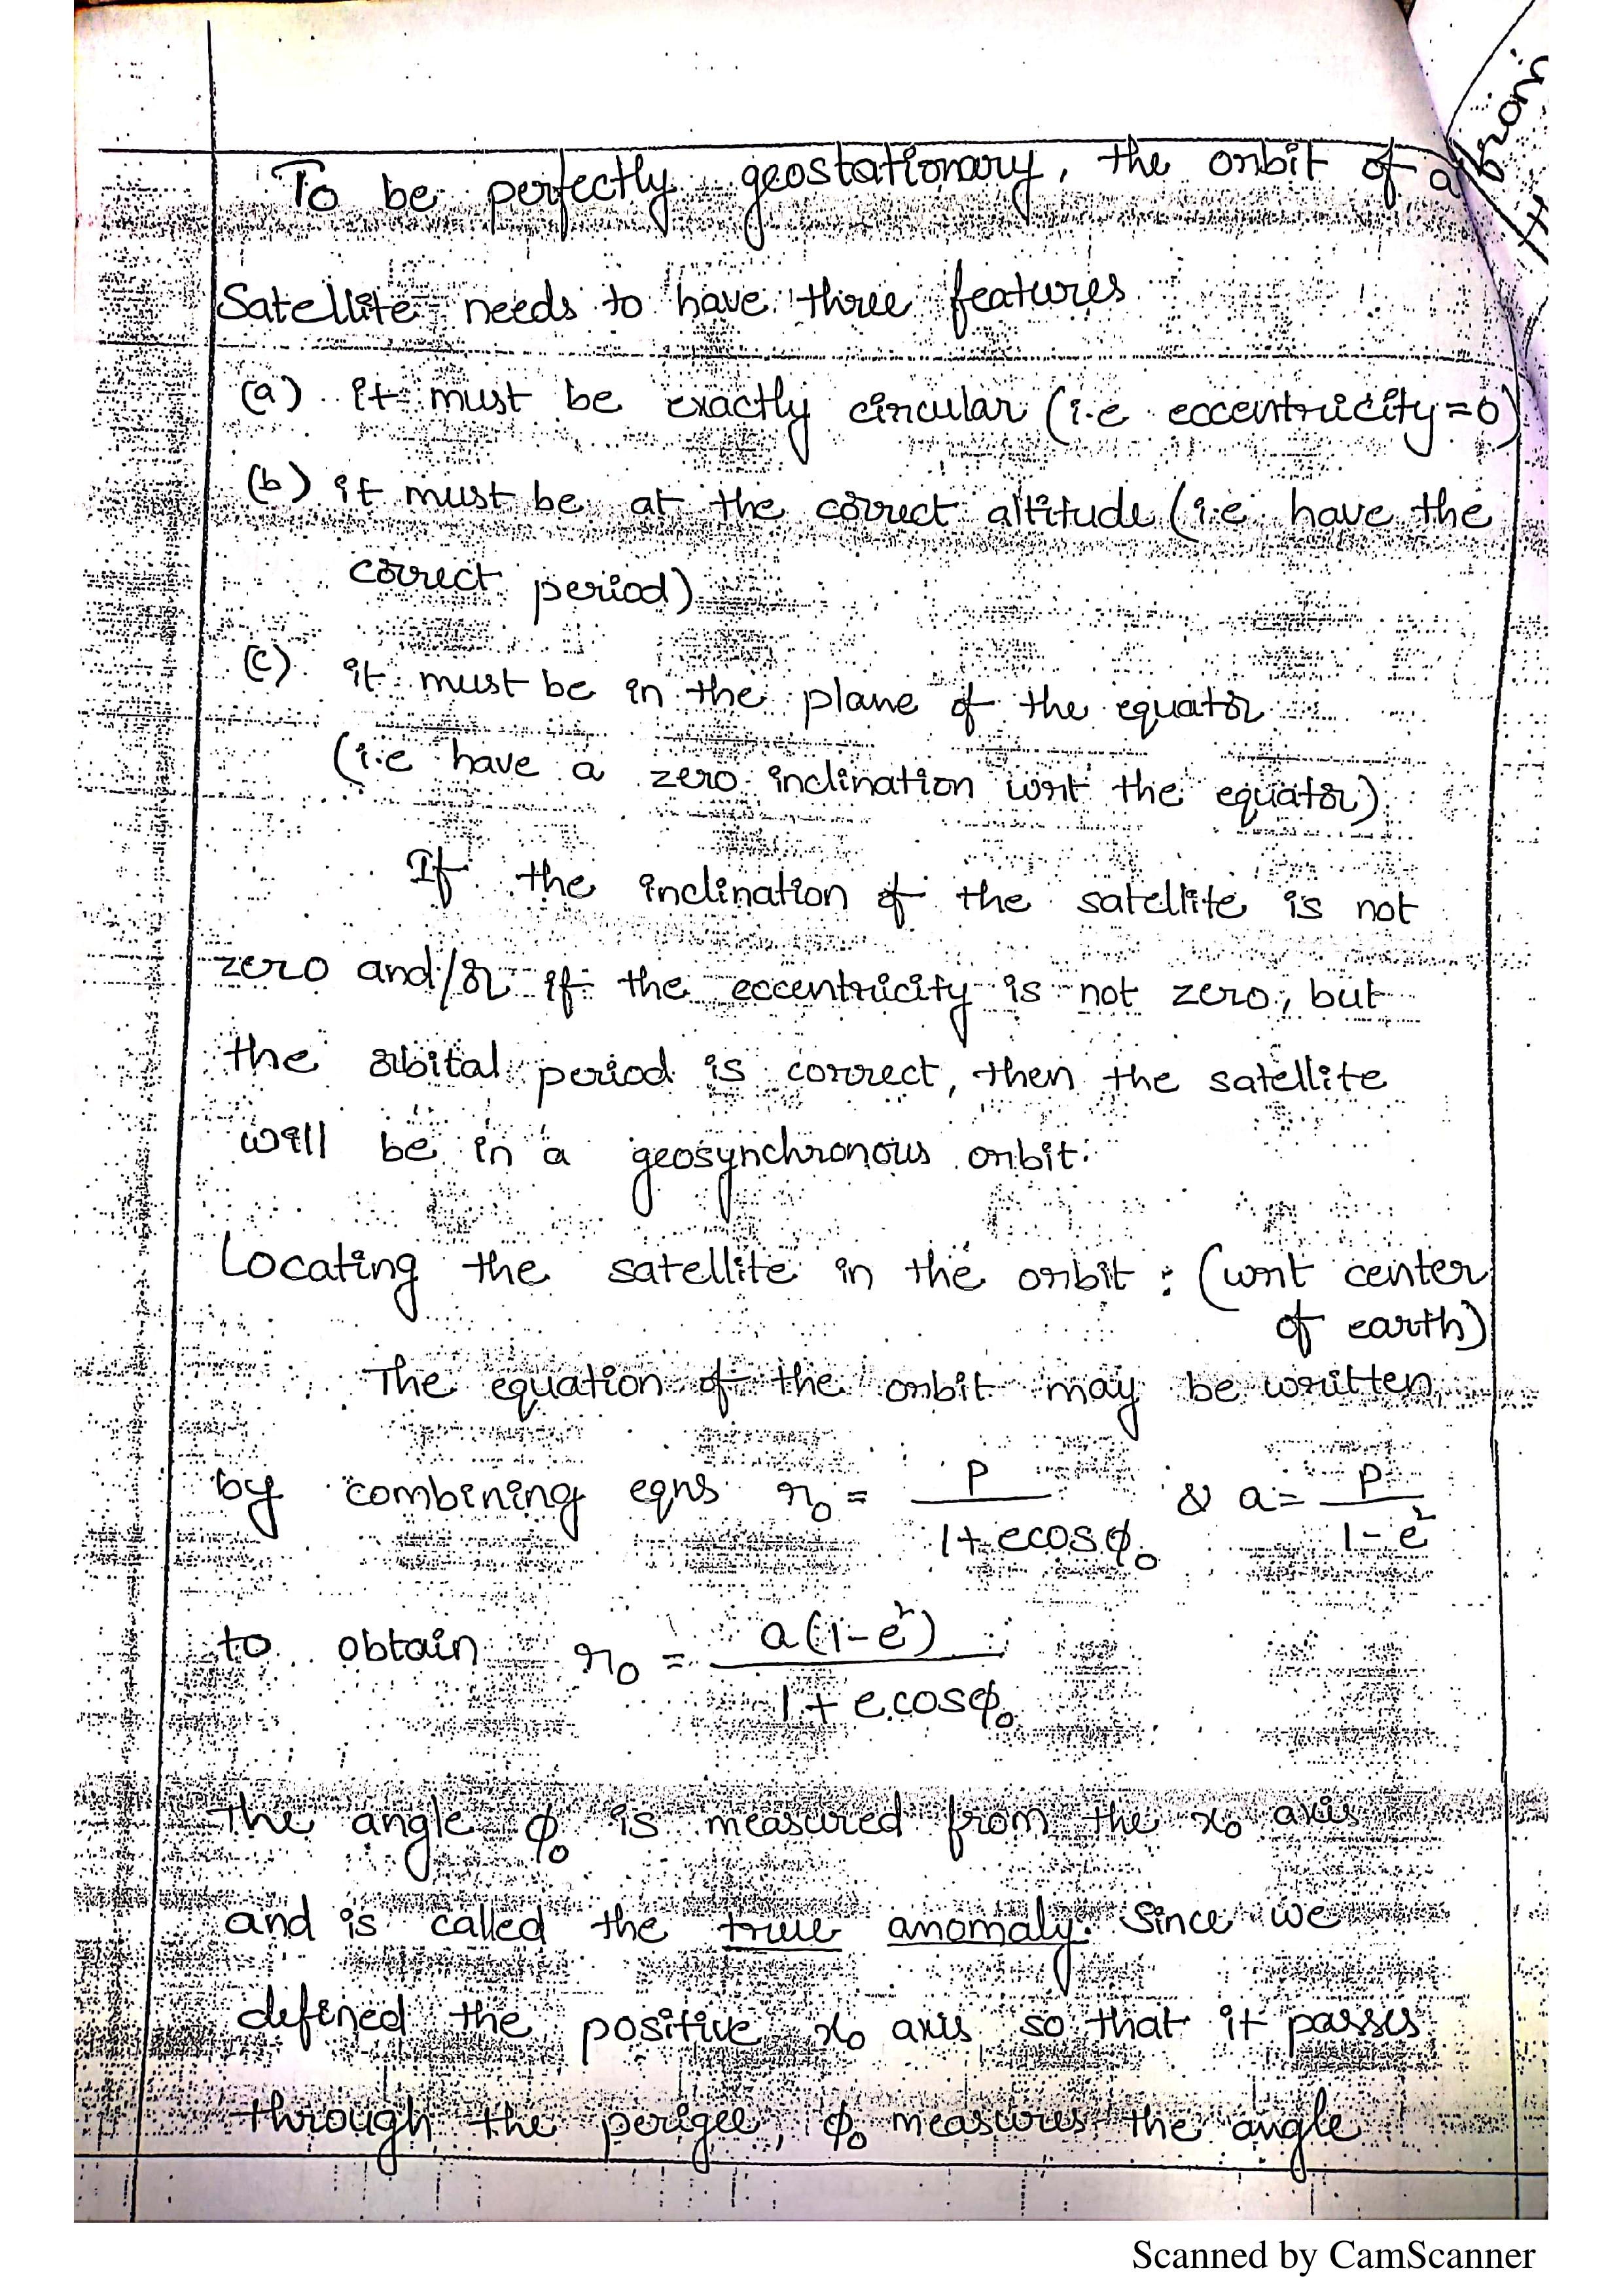 To be perfectly geostationary, the orbit of a
Satellite needs to have three features
(a) it must be exactly circular (i.e eccentricity=0)
(b) it must be at the correct altitude (i.e have the
correct period)
(c) it must be in the plane of the equator
(i.e have a zero inclination wrt the equator)
If the inclination of the satellite is not
zero and/or if the eccentricity is not zero, but
the orbital period is correct, then the satellite
will be in a geosynchronous orbit.
Locating the satellite in the orbit : (wrt center
of earth)
The equation of the orbit may be written
by combining eqns r₀ = p / (1+ecosφ₀) & a = p / (1-e²)
to obtain r₀ = a(1-e²) / (1+e.cosφ₀)
The angle φ₀ is measured from the x₀ axis
and is called the true anomaly. Since we
defined the positive x₀ axis so that it passes
through the perigee, φ₀ measures the angle
Scanned by CamScanner